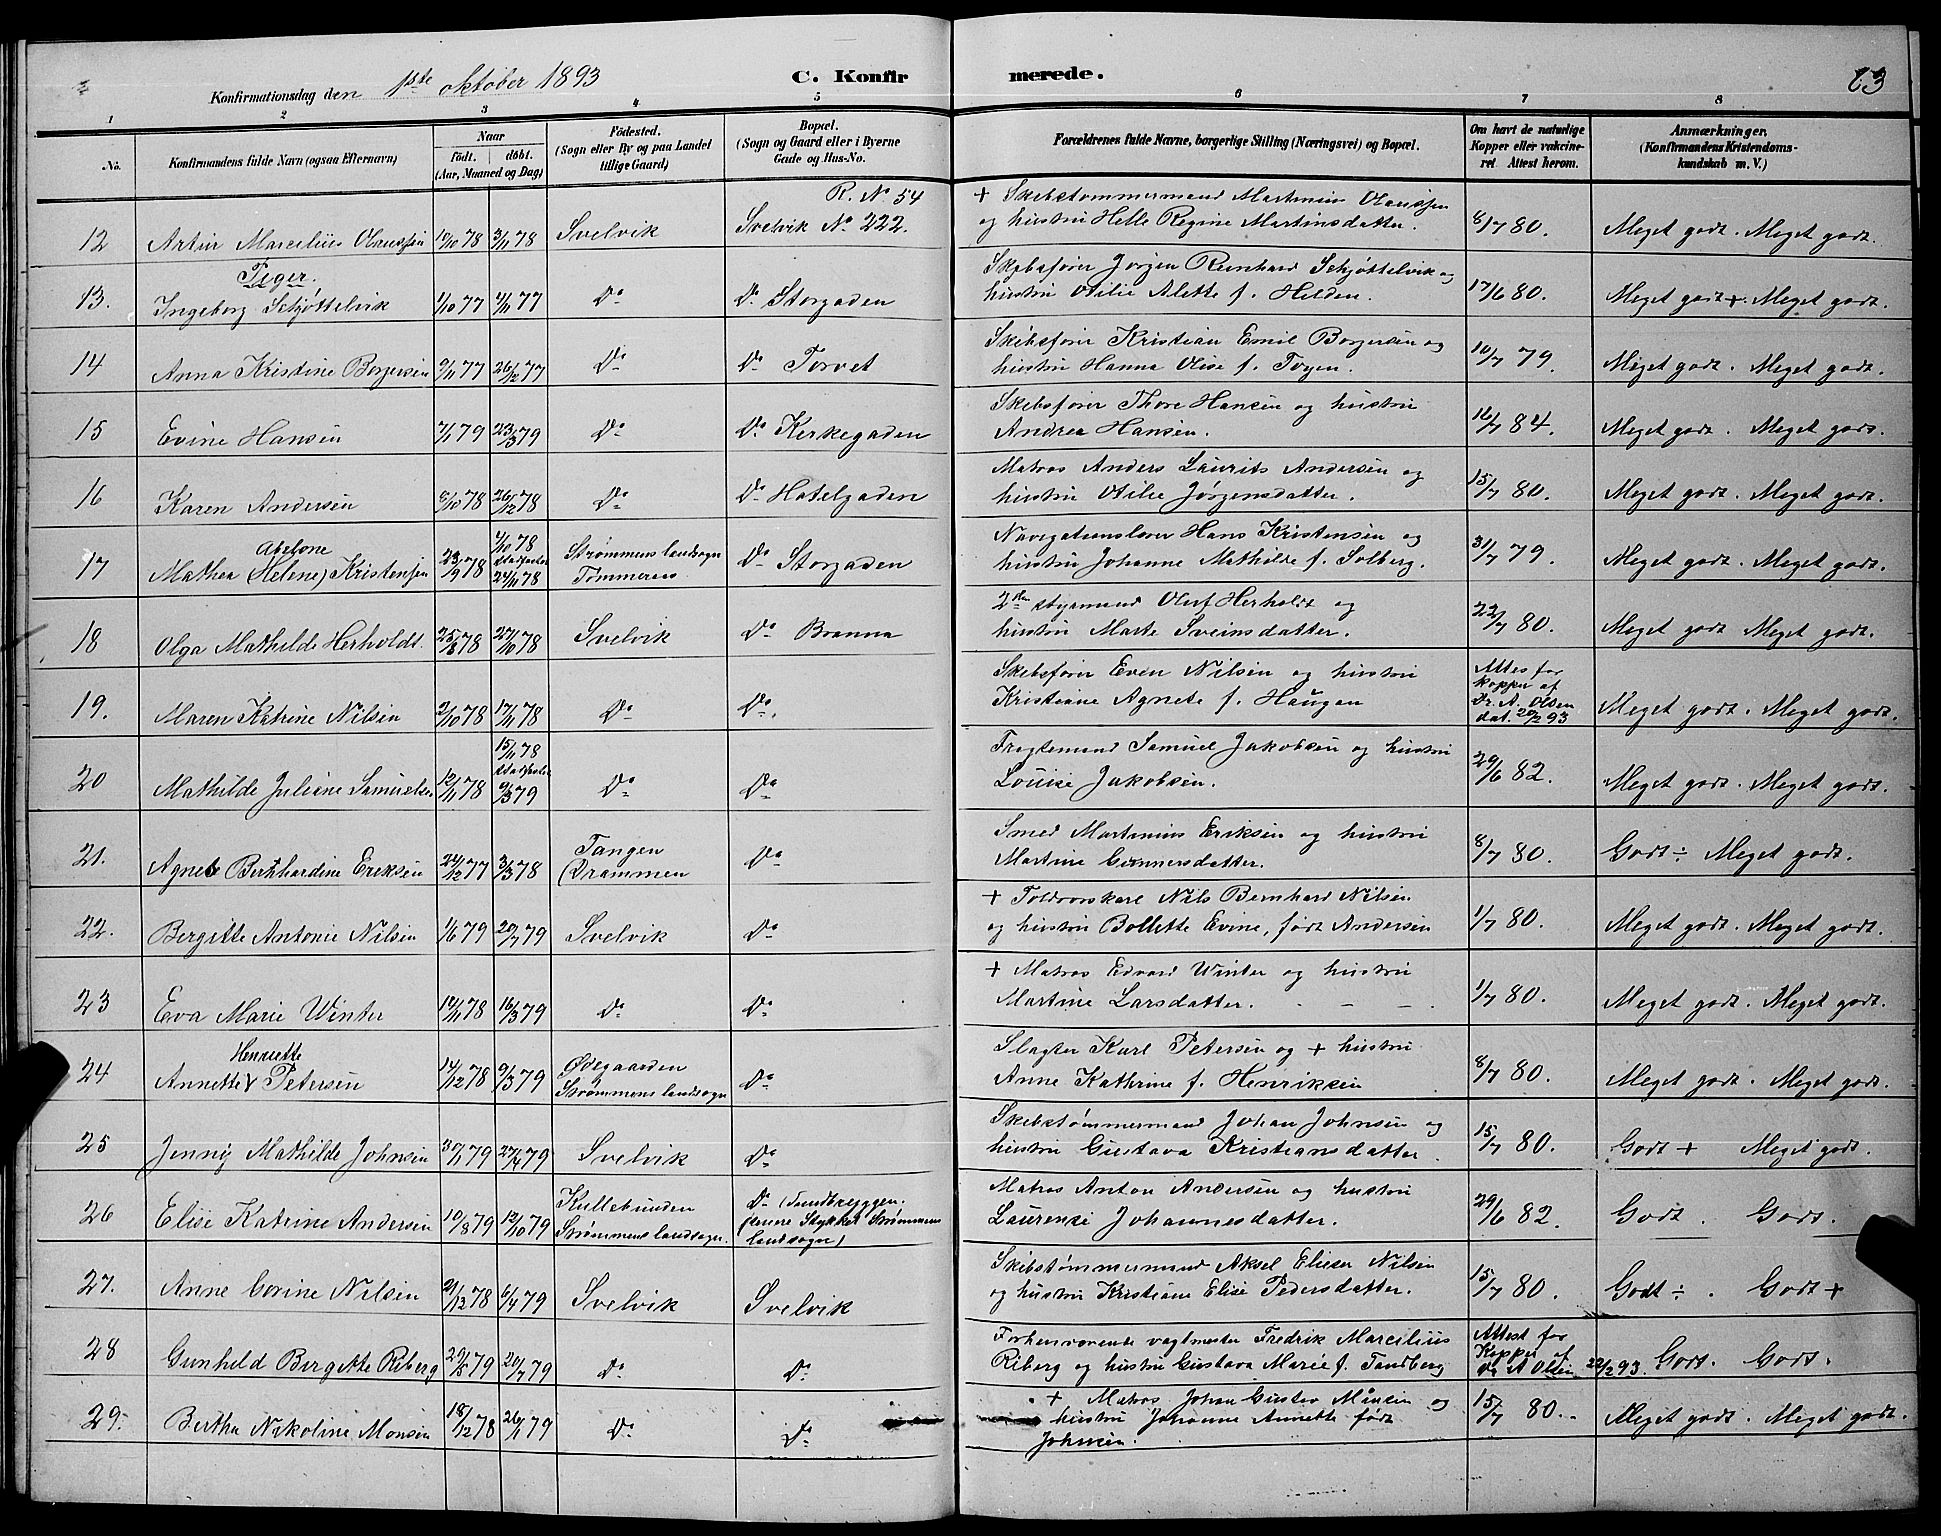 63
Konfirmationsdag den 1ste oktober 1893
C. Konfirmerede.
1 2 3 4 5 6 7 8
No.
Konfirmandens fulde Navn (ogsaa Efternavn)
Naar
født. døbt.
(Aar, Maaned og Dag)
Fødested.
(Sogn eller By og paa Landet
tillige Gaard)
Bopæl.
(Sogn og Gaard eller i Byerne
Gade og Hus-No.
Forældrenes fulde Navne, borgerlige Stilling (Næringsvei) og Bopæl.
Om havt de naturlige
Kopper eller vakcine-
ret Attest herom.
Anmærkninger.
(Konfirmandens Kristendoms-
kundskab m. V.)
R. No 54
+ Skibstømmermand Martinius Olaussen
12 Artur Marcelius Olaussen 19/10 78 3/11 78 Svelvik Svelvik No 222. og hustru Helle Regine Martinsdatter. 8/7 80. Meget godt. Meget godt.
Piger.
Skibsfører Jørgen Reinhard Schjøttelvik og
13. Ingeborg Schjøttelvik 1/10 77 4/11 77 Do Do Storgaden hustru Otilie Alette f. Helden. 17/6 80. Meget godt +. Meget godt.
Skibsfører Kristian Emil Borgersen og
14 Anna Kristine Borgersen 9/11 77 26/12 77 Do Do Torvet hustru Hanna Olise f. 10/7 79. Meget godt. Meget godt.
Skibsfører Thore Hansen og hustru
15 Evine Hansen 7/1 79 23/3 79 Do Do Kirkegaden Andrea Hansen. 16/7 84. Meget godt. Meget godt.
Matros Anders Laurits Andersen og
16 Karen Andersen 8/10 78 26/12 78 Do Do Hotelgaden hustru Otilie Jørgensdatter. 15/7 80. Meget godt. Meget godt.
Abelone 4/10 78 Navigationslærer Hans Kristensen og
17 Mathea (Helene) Kristensen 23/9 78 stadfæstet 24/11 78 Strømmens landsogn Tømmeraas Do Storgaden hustru Johanne Mathilde f. Solberg. 31/7 79. Meget godt. Meget godt.
2den styrmand Oluf Herholdt og
18 Olga Mathilde Herholdt. 25/8 78 27/10 78 Svelvik Do Branna hustru Marte Sveinsdatter. 22/7 80. Meget godt Meget godt.
Skibsfører Even Nilsen og hustru
19. Maren Katrine Nilsen 2/10 78 17/11 78 Do Do. Kristiane Agnete f. Haugen Attes for kopper af Dr. A. Olsen dat. 20/2 93 Meget godt. Meget godt.
15/11 78 Fragtemand Samuel Jakobsen og hustru
20 Mathilde Juliane Samuelsen 12/11 78 stadfæstet 9/3 79 Do Do Louise Jakobsen. 29/6 82. Meget godt. Meget godt.
Smed Martinius Eriksen og hustru
21. Agnete Bernhardine Eriksen 24/12 77 3/3 78 Tangen Drammen Do Martine Gunnersdatter. 8/7 80. Godt ÷ Meget godt.
+ Toldvorskarl Nils Bernhard Nilsen
22. Bergitte Antonie Nilsen 1/6 79 20/7 79 Svelvik Do og hustru Bollette Evine, født Andersen 1/7 80. Meget godt. Meget godt.
+ Matros Edvard Winter og hustru
23 Eva Marie Winter 19/11 78 16/3 79 Do Do Martine Larsdatter. - - - 1/7 80. Meget godt. Meget godt.
Henriette Slagter Karl Petersen og + hustru
24 Annette Petersen 14/12 78 9/3 79 Ødegaarden Strømmens landsogn Do Anne Kathrine f. Henriksen 8/7 80. Meget godt. Meget godt.
Skibstømmermand Johan Johnsen og
25 Jenny Mathilde Johnsen 30/1 79 27/4 79 Svelvik Do hustru Gustava Kristiansdatter. 15/7 80. Godt + Meget godt.
Matros Anton Andersen og hustru
26 Elise Katrine Andersen 10/8 79 12/10 79 Kullebunden Strømmens landsogn. Do (Sandbryggen. Strømmens landsogn) Laurense Johannesdatter. 29/6 82. Godt. Godt.
Skibstømmermand Aksel Elieser Nilsen
27. Anne Corine Nilsen 21/12 78 6/4 79 Svelvik Svelvik og hustru Kristiane Elise Pedersdatter. 15/7 80. Godt ÷. Godt +
Forhenværende vagtmester Fredrik Marcilius
28 Gunhild Bergette Riberg 29/5 79 20/7 79 Do Do Riberg og hustru Gustava Marie f. Tandberg Attest for Kopper af Dr A Olsen 22/2 93. Godt. Godt.
+ Matros Johan Gustav Monsen og
29. Bertha Nikoline Monsen 18/12 78 26/1 79 Do Do hustru Johanne Annette født 15/7 80. Meget godt. Meget godt.
Johnsen.